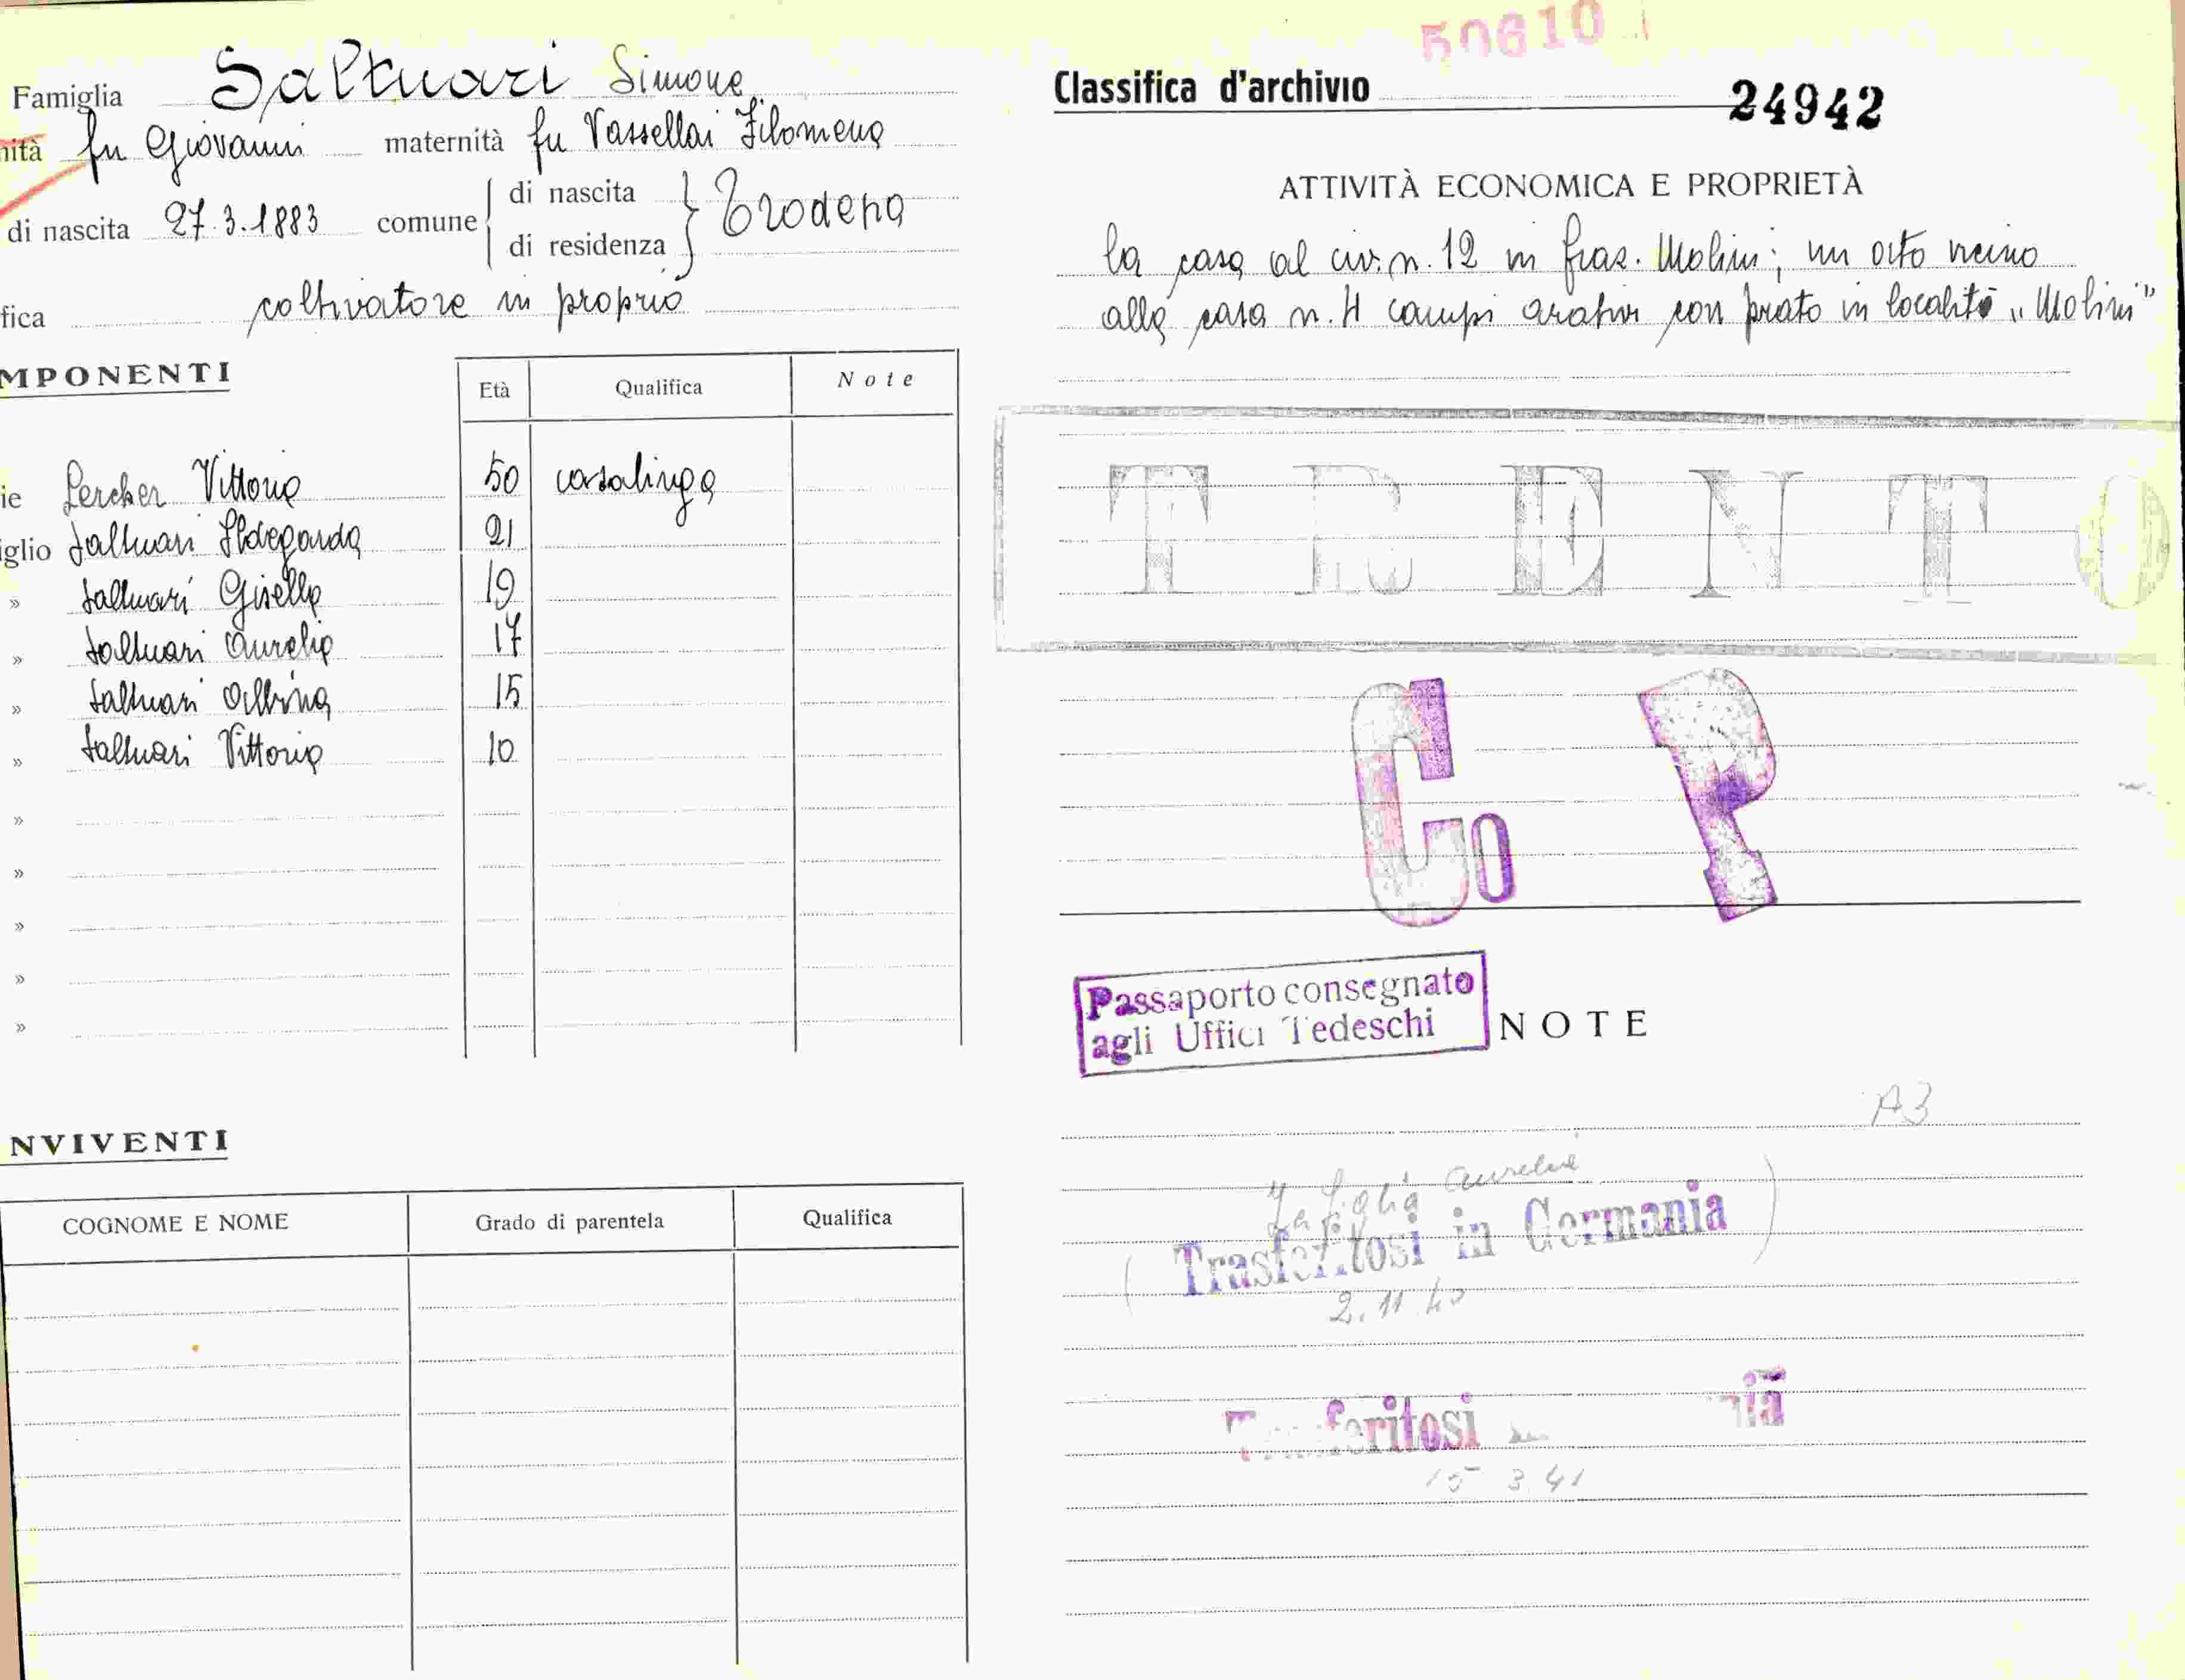 50610
Famiglia Saltuari Simone
nità fu Giovanni maternità fu Vassellai Filomena
di nascita 27.3.1883 comune di nascita di residenza Trodena
fica coltivatore in proprio
MPONENTI
Età Qualifica Note
ie Lercher Vittoria 50 casalinga
iglio Saltuari Ildegarda 21
» Saltuari Gisella 19
» Saltuari Aurelia 17
» Saltuari Albina 15
» Saltuari Vittoria 10
»
»
»
»
»
NVIVENTI
COGNOME E NOME Grado di parentela Qualifica
Classifica d'archivio 24942
ATTIVITÀ ECONOMICA E PROPRIETÀ
la casa al civ. n. 12 in fraz. Molini; un orto vicino
alla casa n. 4 campi arativi con prato in località „Molini"
TRENTO
Co P
Passaporto consegnato
agli Uffici Tedeschi
NOTE
A3
La figlia Aurelia
(Trasferitosi in Germania)
2.11.40
Trasferitosi
15 3 41